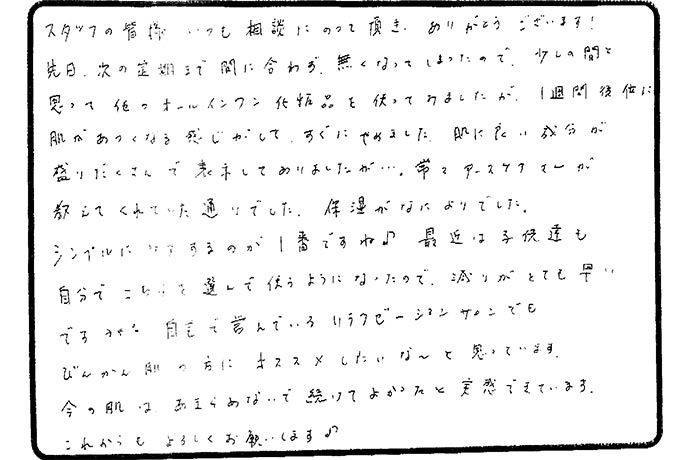 スタッフの皆様 いつも相談にのって頂き、ありがとうございます!
先日、次の定期まで間に合わず、無くなってしまったので、少しの間と
思って他のオールインワン化粧品を使ってみましたが、1週間後位に
肌があつくなる感じがして、すぐにやめました。肌に良い成分が
盛りだくさんで表示してありましたが…。常々アースケアさんが
教えてくれていた通りでした。保湿がなによりでした。
シンプルにケアするのが1番ですね♪ 最近は子供達も
自分でこちらを選んで使うようになったので、減りがとても早い
ですみたい 自宅で営んでいるリラクゼーションサロンでも
びんかん肌の方にオススメしたいな〜と思っています。
今の肌は、あきらめないで続けてよかったと実感できています。
これからもよろしくお願いします♪